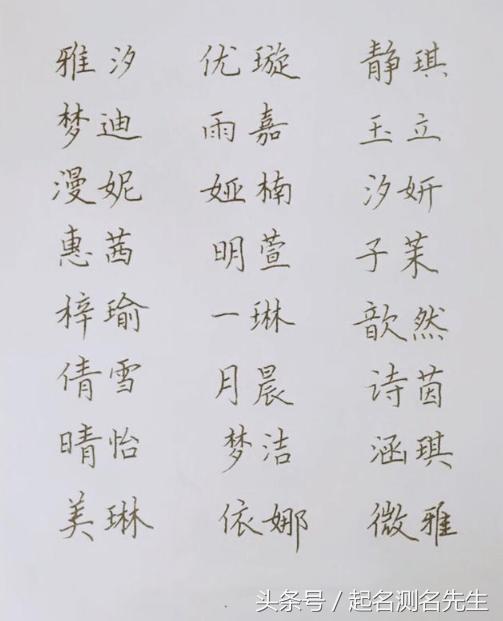 雅汐 优璇 静琪
梦迪 雨嘉 玉立
漫妮 娅楠 汐妍
惠茜 明萱 子茉
梓瑜 一琳 歆然
倩雪 月晨 诗茵
晴怡 梦洁 涵琪
美琳 依娜 微雅
头条号 / 起名测名先生